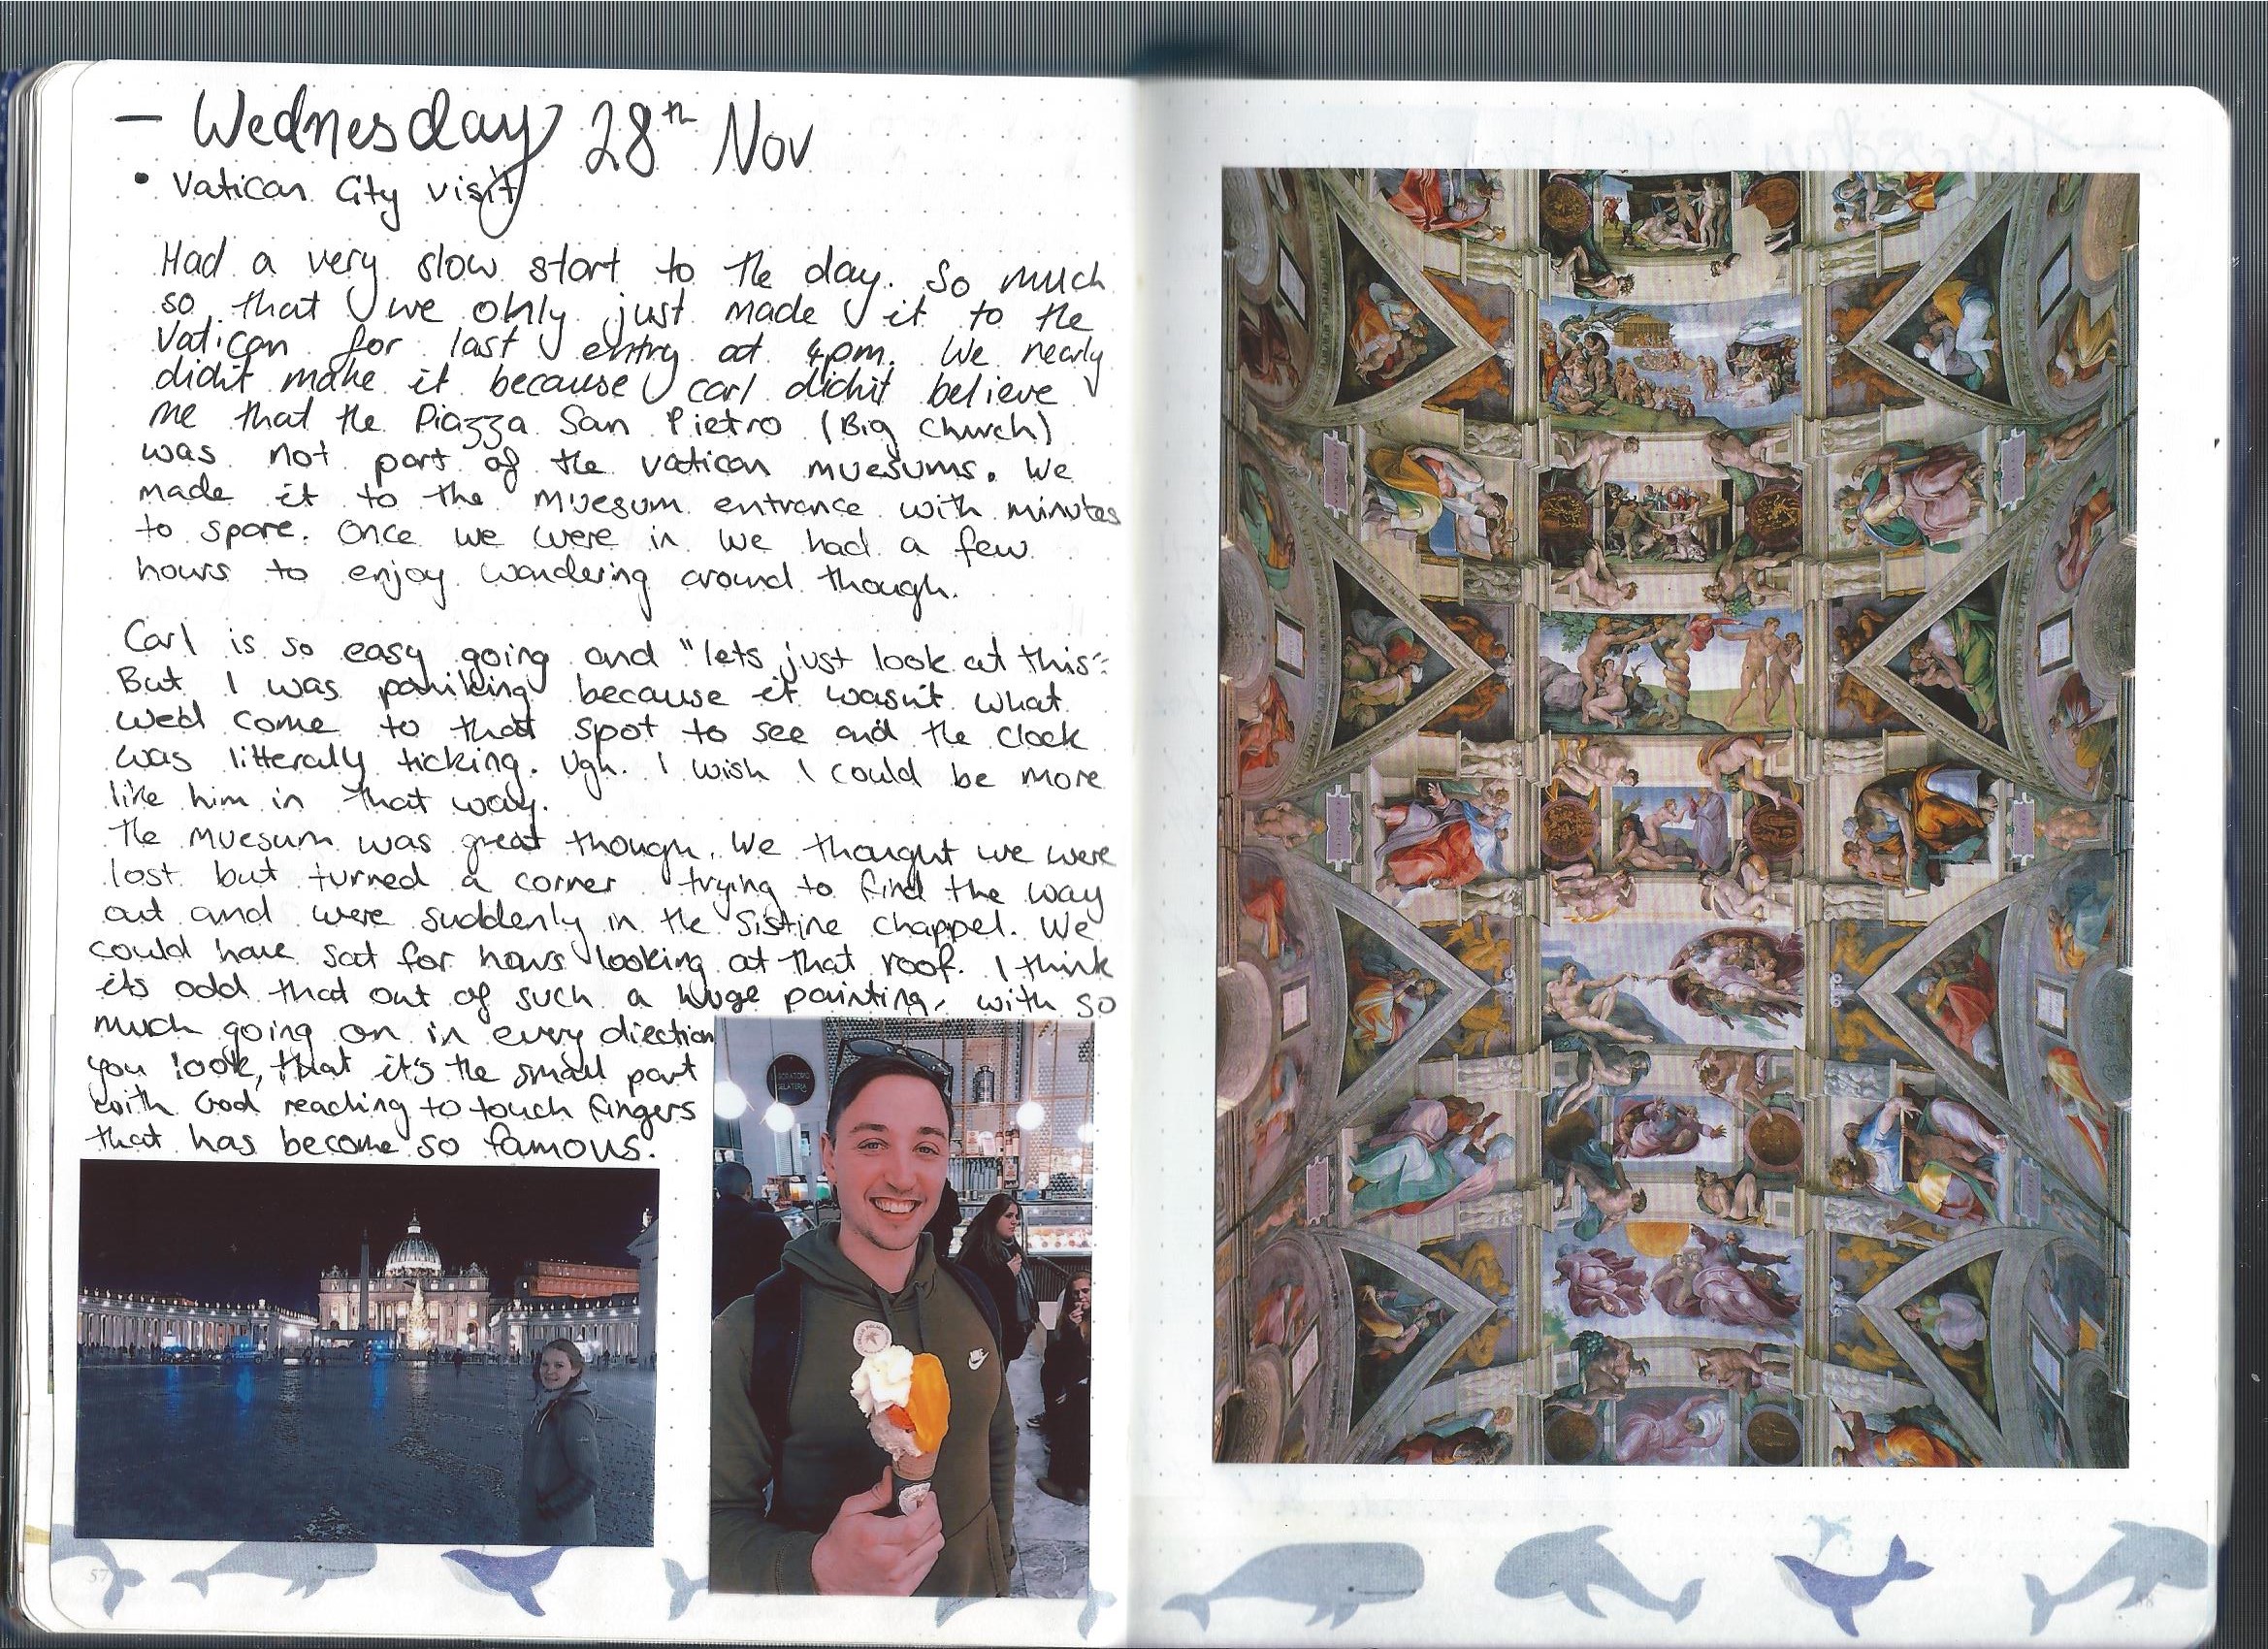 — Wednesday 28th Nov
• Vatican City visit
Had a very slow start to the day. So much
so that we only just made it to the
Vatican for last entry at 4pm. We nearly
didn't make it because Carl didn't believe
me that the Piazza San Pietro (Big Church)
was not part of the vatican muesums. We
made it to the muesum entrance with minutes
to spare. Once we were in we had a few
hours to enjoy wandering around though.
Carl is so easy going and "lets just look at this".
But I was paniking because it wasn't what
we'd come to that spot to see and the clock
was litterally ticking. Ugh. I wish I could be more
like him in that way.
The muesum was great though. We thought we were
lost but turned a corner trying to find the way
out and were suddenly in the Sistine chappel. We
could have sat for hours looking at that roof. I think
its odd that out of such a huge painting, with so
much going on in every direction
you look, that it's the small part
with God reaching to touch fingers
that has become so famous.
57